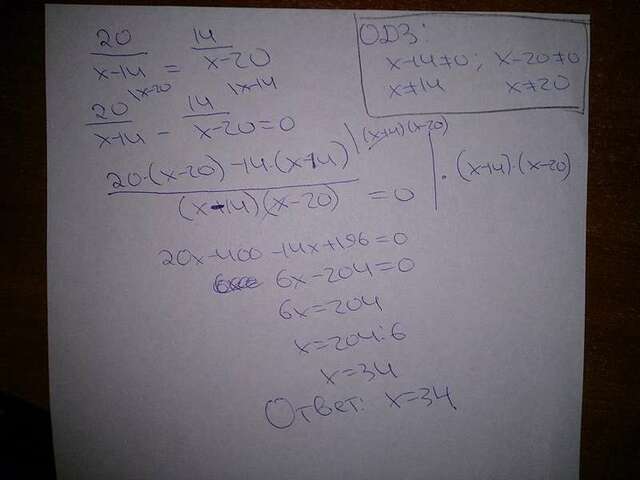 20/(x-14) = 14/(x-20)
ОДЗ:
x-14≠0; x-20≠0
x≠14 x≠20
20/(x-14) |x-20 - 14/(x-20) |x-14 = 0
(20·(x-20)-14·(x-14))/((x-14)(x-20)) |(x-14)(x-20) = 0 | ·(x-14)·(x-20)
20x-400-14x+196=0
6x-204=0
6x=204
x=204:6
x=34
Ответ: x=34